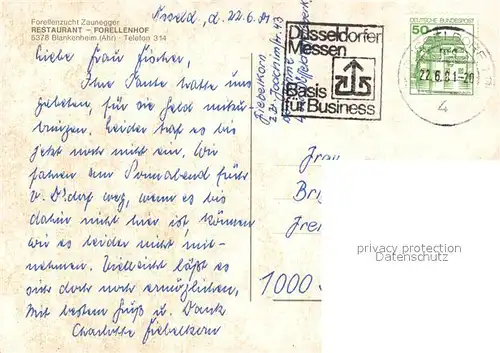 Forellenzucht Zaunegger
RESTAURANT – FORELLENHOF
5378 Blankenheim (Ahr) · Telefon 314
d. 22.6.81
Liebe Frau Fischer,
Ihre Tante hatte uns
gebeten, für sie Geld mitzu-
bringen. Leider hat es bis
jetzt noch nicht ein. Wir
fahren am Sonnabend früh
v. D'dorf weg, wenn es bis
dahin nicht hier ist, können
wir es leider nicht mit-
nehmen. Vielleicht läßt es
sich doch noch ermöglichen,
Mit bestem Gruß u. Dank
Charlotte Fiebelkorn
Fiebelkorn
Düsseldorfer
Messen
Basis
für Business
DEUTSCHE BUNDESPOST
50
22.6.81-20
4
Frau
1000
privacy protection
Datenschutz